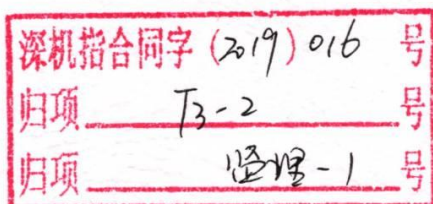 深机指合同字(2019)016号
归项 T3-2 号
归项 监理-1 号